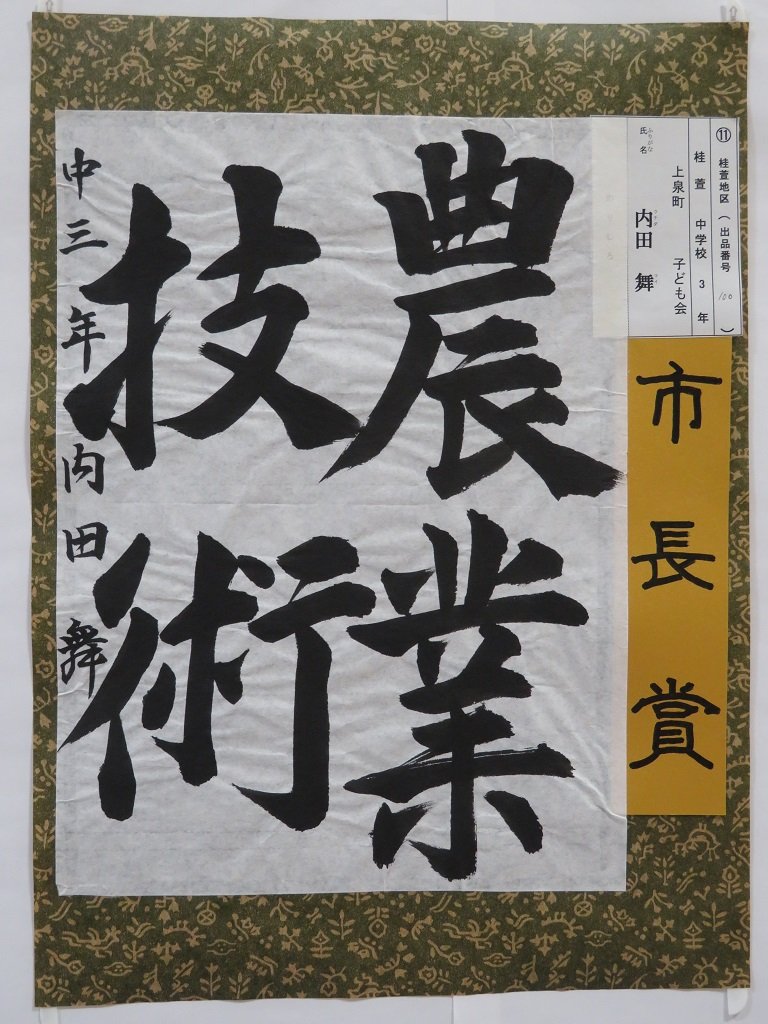 農業
技術
中三年 内田 舞
⑪ 桂萱地区 ( 出品番号 100 )
桂萱 中学校 3 年
上泉町 子ども会
ふりがな
氏名
内田 舞
市長賞